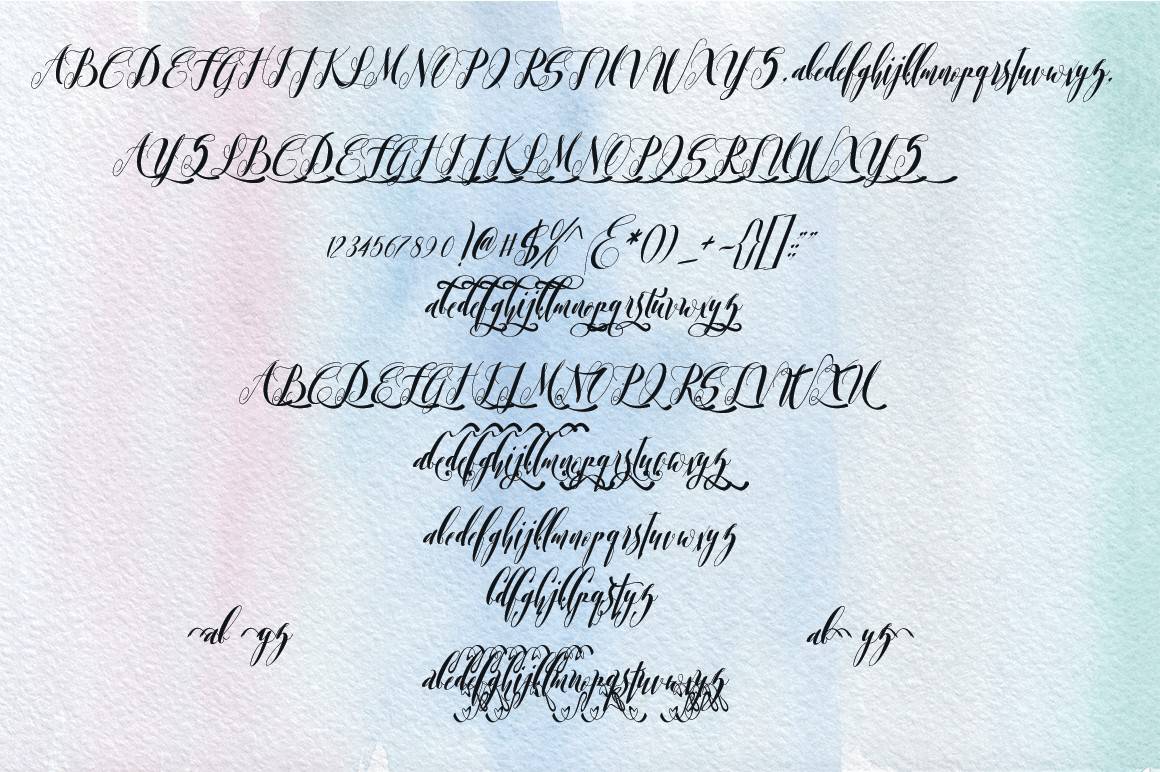 ABCDEFGHIJKLMNOPQRSTUVWXYZ.abcdefghijklmnopqrstuvwxyz.
AYZLBCDEFGHIJKLMNOPQSRTUWXYZ
1234567890!@#$%^&*()_+-{}[]:;""
abcdefghijklmnopqrstuvwxyz
abcdefghijklmnopqrstuvwxyz
abcdefghijklmnopqrstuvwxyz
bdfghjklpqstyz
ab yz ab yz
abcdefghijklmnopqrstuvwxyz